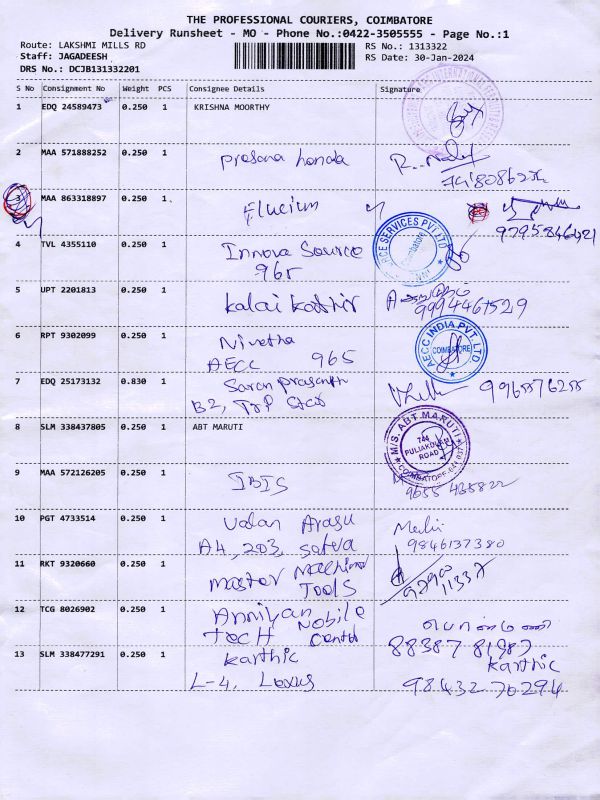 THE PROFESSIONAL COURIERS, COIMBATORE
Delivery Runsheet - MO - Phone No.:0422-3505555 - Page No.:1
Route: LAKSHMI MILLS RD
RS No.: 1313322
Staff: JAGADEESH
RS Date: 30-Jan-2024
DRS No.: DCJB131332201
S No Consignment No Weight PCS Consignee Details Signature
1 EDQ 24589473 0.250 1 KRISHNA MOORTHY
2 MAA 571888252 0.250 1 prasana honda
3 MAA 863318897 0.250 1 Flucium
9795846421
4 TVL 4355110 0.250 1 Innova Source
965
ACE SERVICES PVT LTD
Coimbatore
5 UPT 2201813 0.250 1 kalai kathir
9994461529
6 RPT 9302099 0.250 1 Nivetha
AECC 965
AECC INDIA PVT. LTD
COIMBATORE
7 EDQ 25173132 0.830 1 Saran prasanth
B2, Top Star
9968876288
8 SLM 338437805 0.250 1 ABT MARUTI
M/S. ABT MARUTI
744
PULIAKULAM
ROAD
9 MAA 572126205 0.250 1 IBIS
10 PGT 4733514 0.250 1 Valan Arasu
A4, 203, Satva
9846137380
11 RKT 9320660 0.250 1 Master Machine
Tools
12 TCG 8026902 0.250 1 Anniyan Mobile
TECH Center
88387 81987
13 SLM 338477291 0.250 1 karthic
L-4, Lexus
karthic
98432 70294